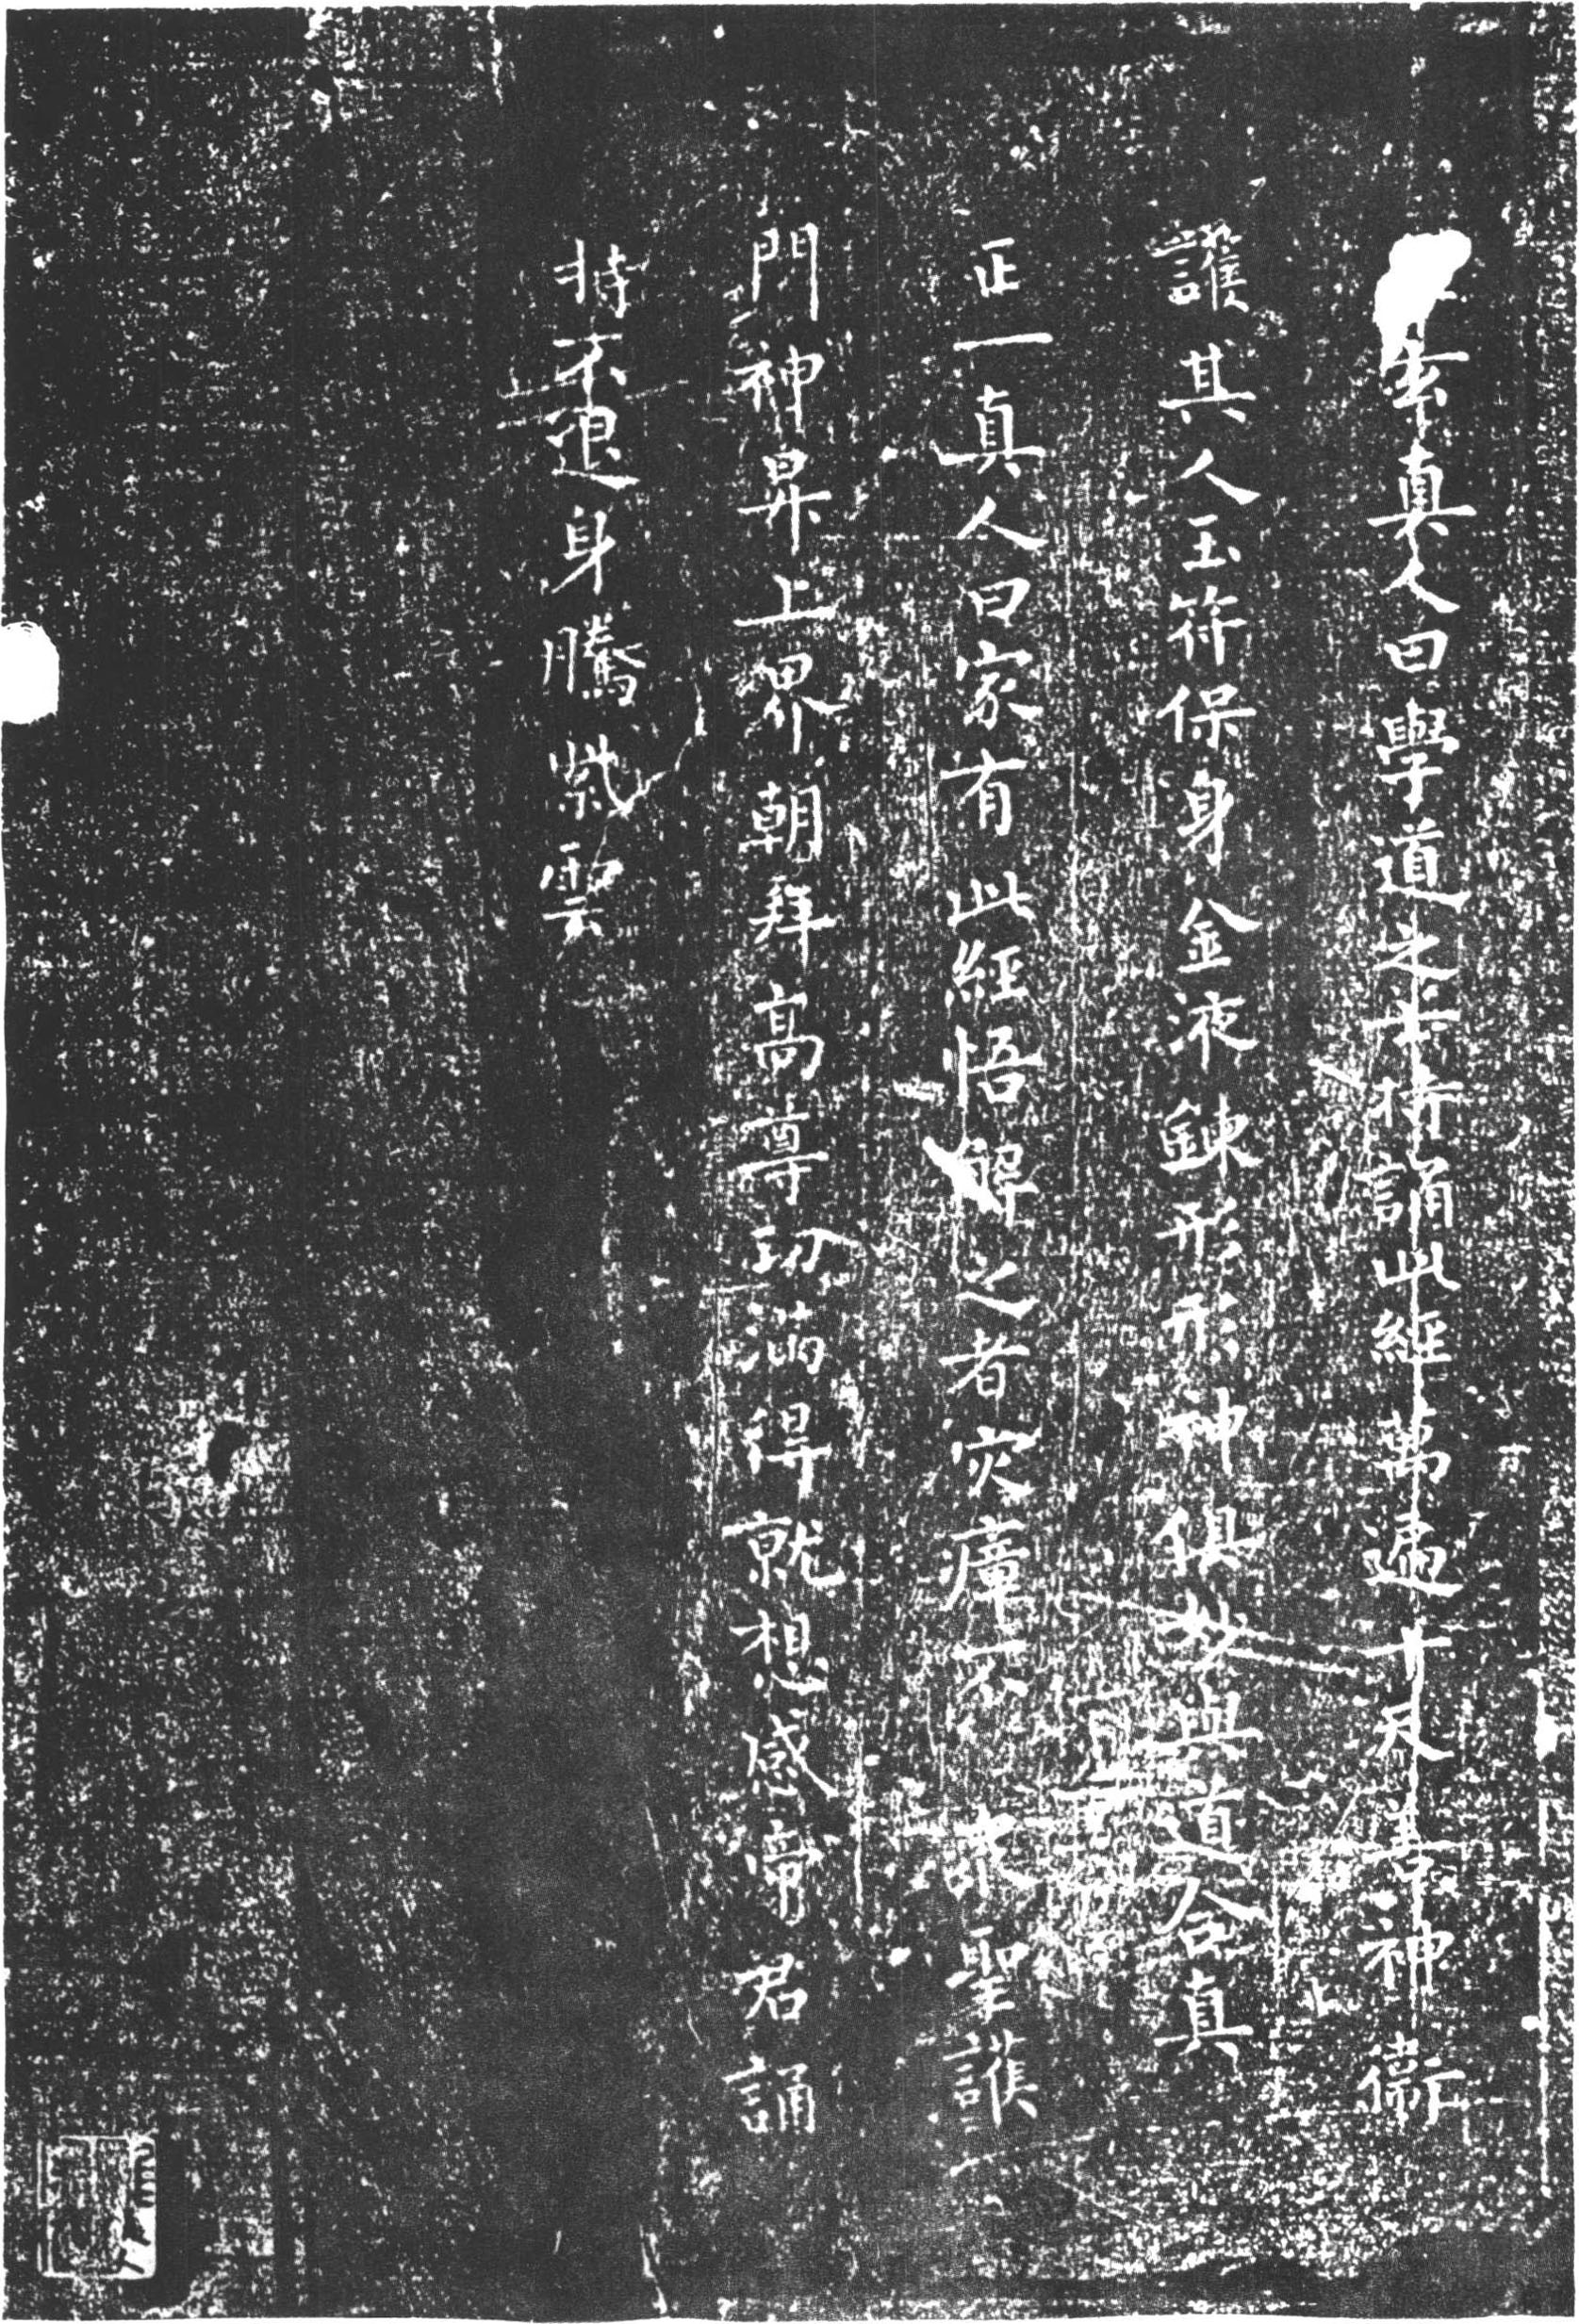 玄真人曰學道之士持誦此經萬遍十天善神衛
護其人玉符保身金液鍊形形神俱妙與道合真
正一真人曰家有此經悟解之者灾瘴不衆聖護
門神昇上界朝拜高尊功滿得就想感帝君誦
持不退身騰紫雲